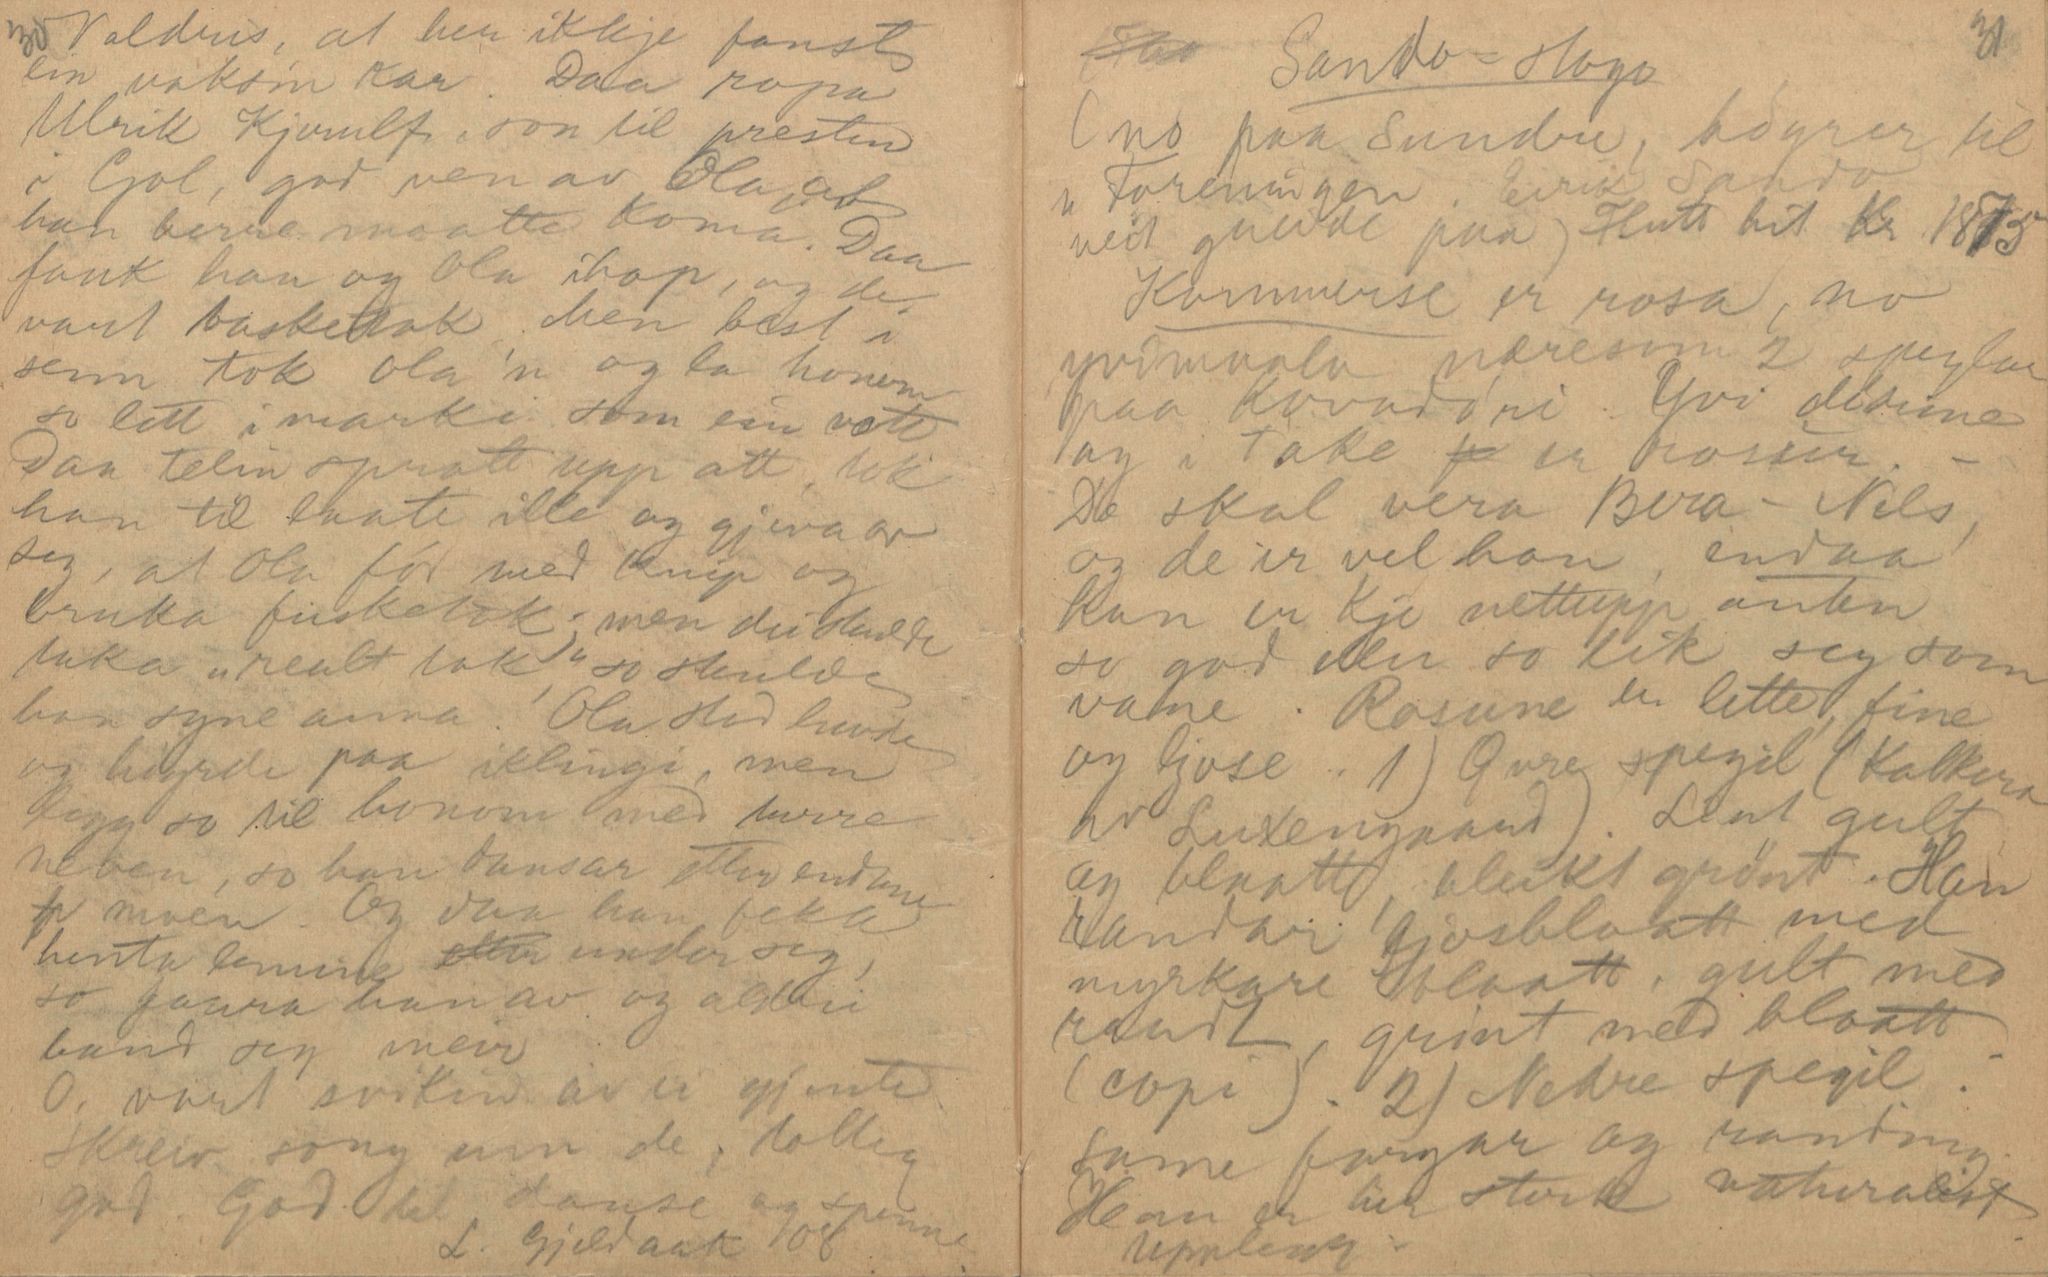 30
Valdris, at her ikkje fanst
ein voksin kar. Daa ropa
Ulrik Kjerulf, son til presten
i Gol, god ven av Ola, at
han berre maatte koma. Daa
fauk han og Ola ihop, og de
vart basketak. Men best i
senn tok Ola 'n og la honom
so lett i marki som ein vott
Daa telin spratt upp att, tok
han til laate ille og gjeva av
seg, at Ola fór med knip og
bruka fusketok; men dei skulde
taka "realt tok", so skulde
han syne anna. Ola stod
og høyrde paa iklingi, men
slogg so til honom med berre
neven, so han dansar etter endame
moen. Og daa han fekk
henta lemine etter under seg,
so faura han av og aldri
baud seg meir
O. vart svikin av ei gjente
skreiv song um de, tolleg
god. God til danse og spenne
L. Gjeldaak 08
31
Sando-stogo
(no paa Sundre, høyrer til
"Foreningen. Eirik Sando
veit greide paa) Flutt hit kr 1875
Kammerse er rosa, no
yvimaala næresom 2 speglar
paa kovadóri. Yvi
og i take er rosur. -
De skal vera Bera-Nils,
og de er vel han, endaa
han er kje nettupp anten
so god eller so lik seg som
vane. Rosune er lette, fine
og ljose. 1) Øvre spegil (Kalkera
av Luxengaard). Lent gult
og blaatt, bleikt grønt. Han
randar ljosblaatt med
myrkare blaatt, gult med
raudt, grønt med blaatt
(copi). 2) Nedre spegil.
Same fargar og randing.
Han er her sterk naturalist
Upplegg -